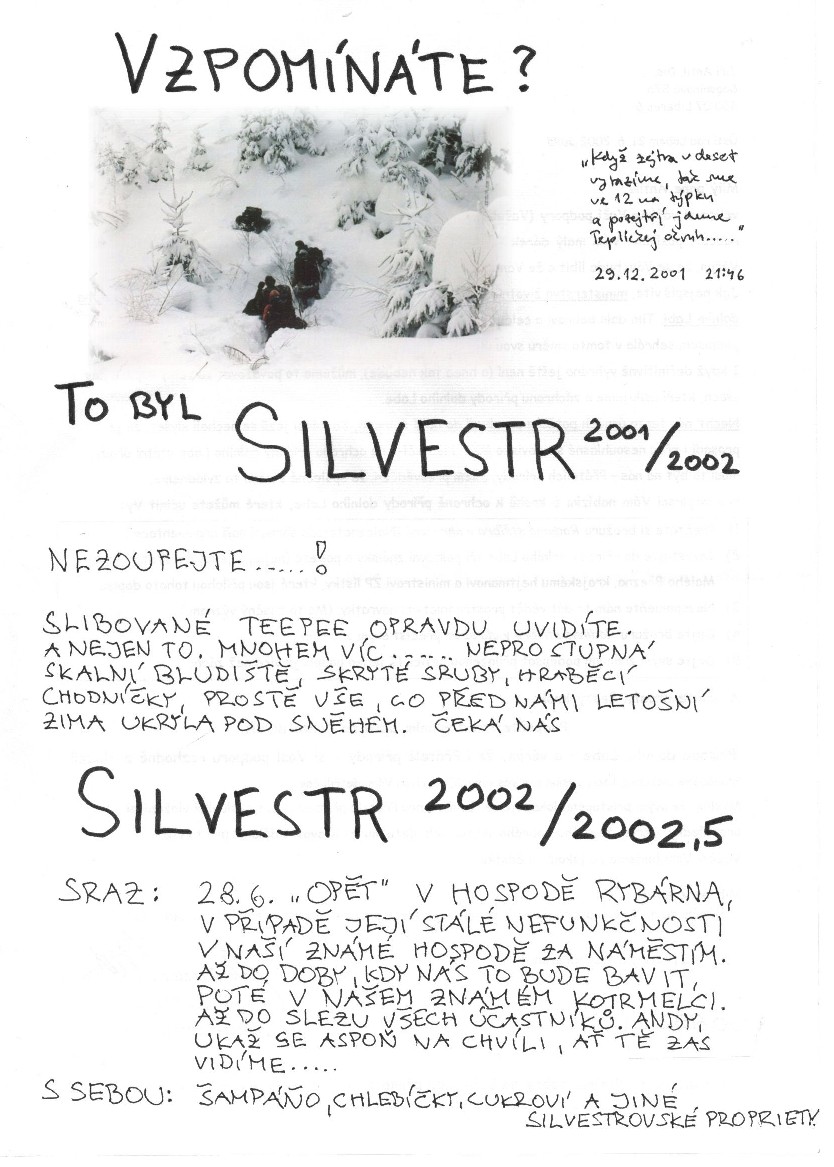 VZPOMÍNÁTE?
„Když zejtra v deset
vyrazíme, tak sme
ve 12 na týpku
a pozejtří jdeme
Teplickej okruh....."
29.12.2001 21:46
TO BYL
SILVESTR 2001/2002
NEZOUFEJTE.....!
SLIBOVANÉ TEEPEE OPRAVDU UVIDÍTE.
A NEJEN TO. MNOHEM VÍC...... NEPROSTUPNÁ
SKALNÍ BLUDIŠTĚ, SKRYTÉ SRUBY, HRABĚCÍ
CHODNÍČKY, PROSTĚ VŠE, CO PŘED NÁMI LETOŠNÍ
ZIMA UKRYLA POD SNĚHEM. ČEKÁ NÁS
SILVESTR 2002/2002,5
SRAZ: 28.6. „OPĚT" V HOSPODĚ RYBÁRNA,
V PŘÍPADĚ JEJÍ STÁLÉ NEFUNKČNOSTI
V NAŠÍ ZNÁMÉ HOSPODĚ ZA NÁMĚSTÍM.
AŽ DO DOBY, KDY NÁS TO BUDE BAVIT,
POTÉ V NAŠEM ZNÁMÉM KOTRMELCI.
AŽ DO SLEZU VŠECH ÚČASTNÍKŮ. ANDY,
UKAŽ SE ASPOŇ NA CHVÍLI, AŤ TĚ ZAS
VIDÍME.....
S SEBOU: ŠAMPÁŇO, CHLEBÍČKY, CUKROVÍ A JINÉ
SILVESTROVSKÉ PROPRIETY